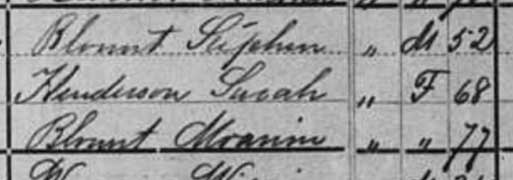 Blount Stephen " M 52
Henderson Sarah " F 68
Blount " " 77